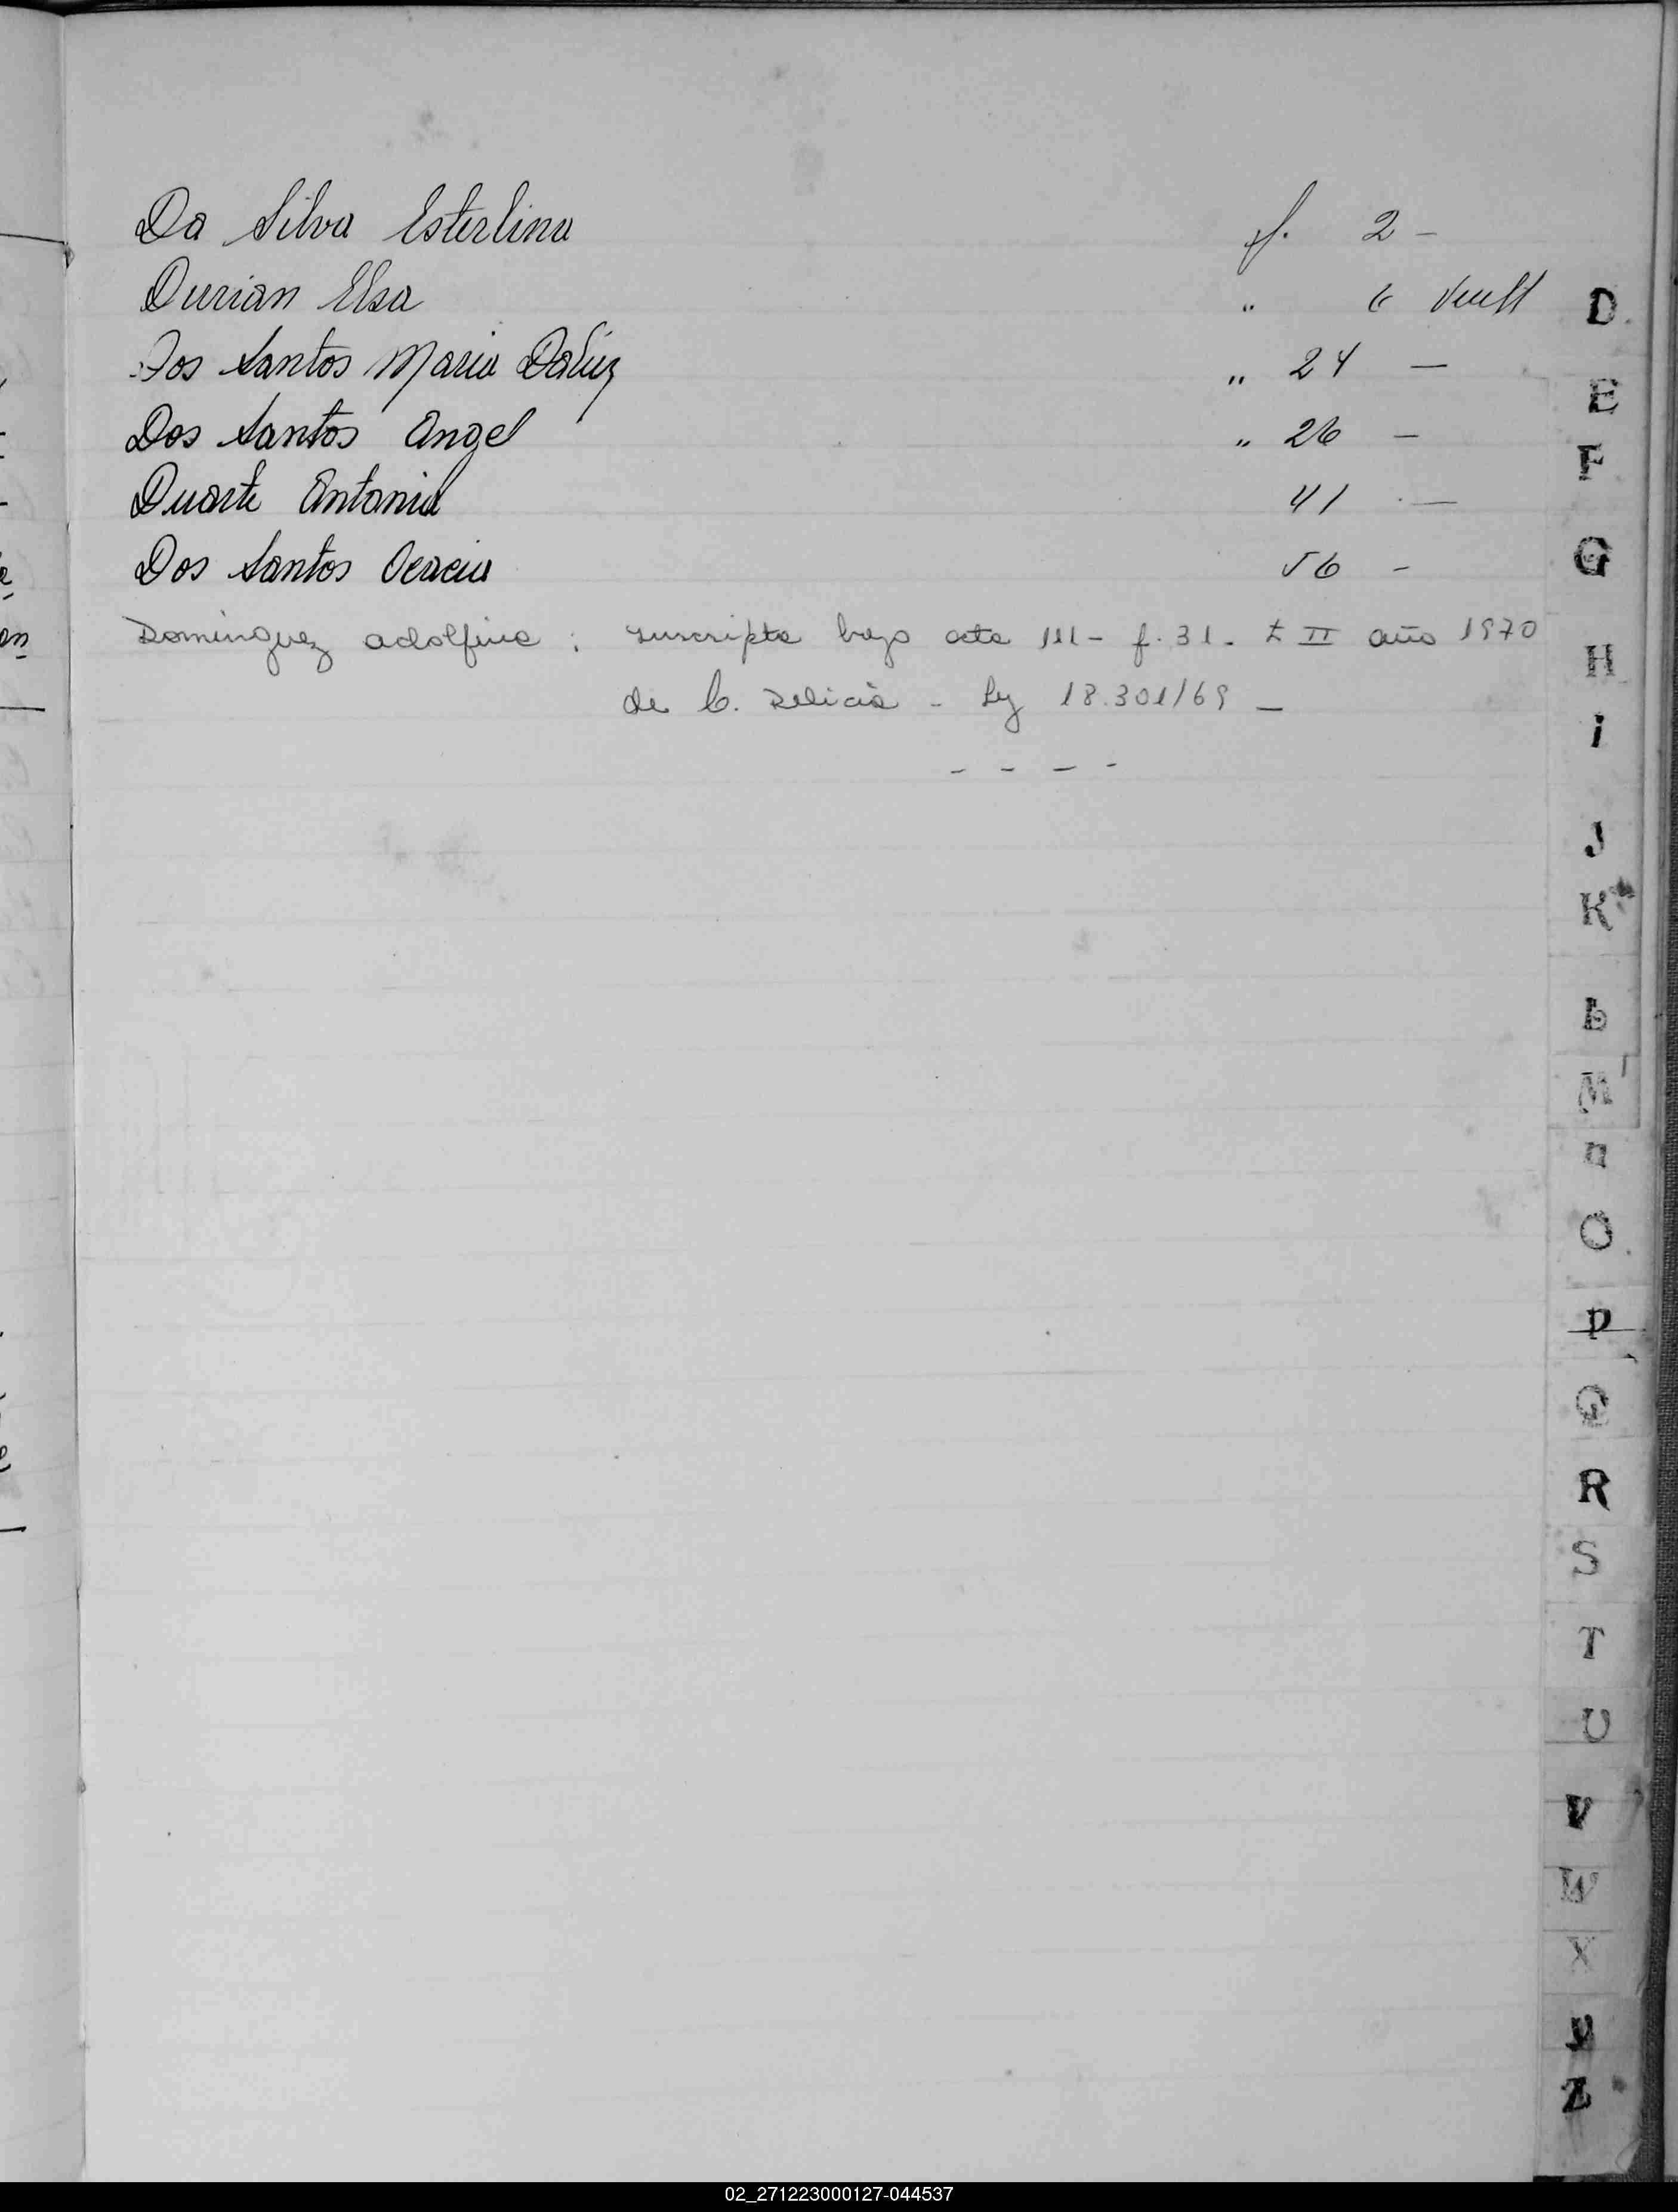 Da Silva Esterlina f. 2 -
Durian Elsa " 6 Vuelt
Dos Santos Maria Daluz " 24 —
Dos Santos Angel " 26 -
Duarte Antonia 41 —
Dos Santos 56 -
Dominguez Adolfina : inscripta bajo acta 111 - f. 31 - t II año 1970
de C. Delicia - Ley 18.301/69 -
- - - -
D
E
F
G
H
i
J
K
L
M
n
O
P
Q
R
S
T
U
V
W
X
y
Z
02_271223000127-044537